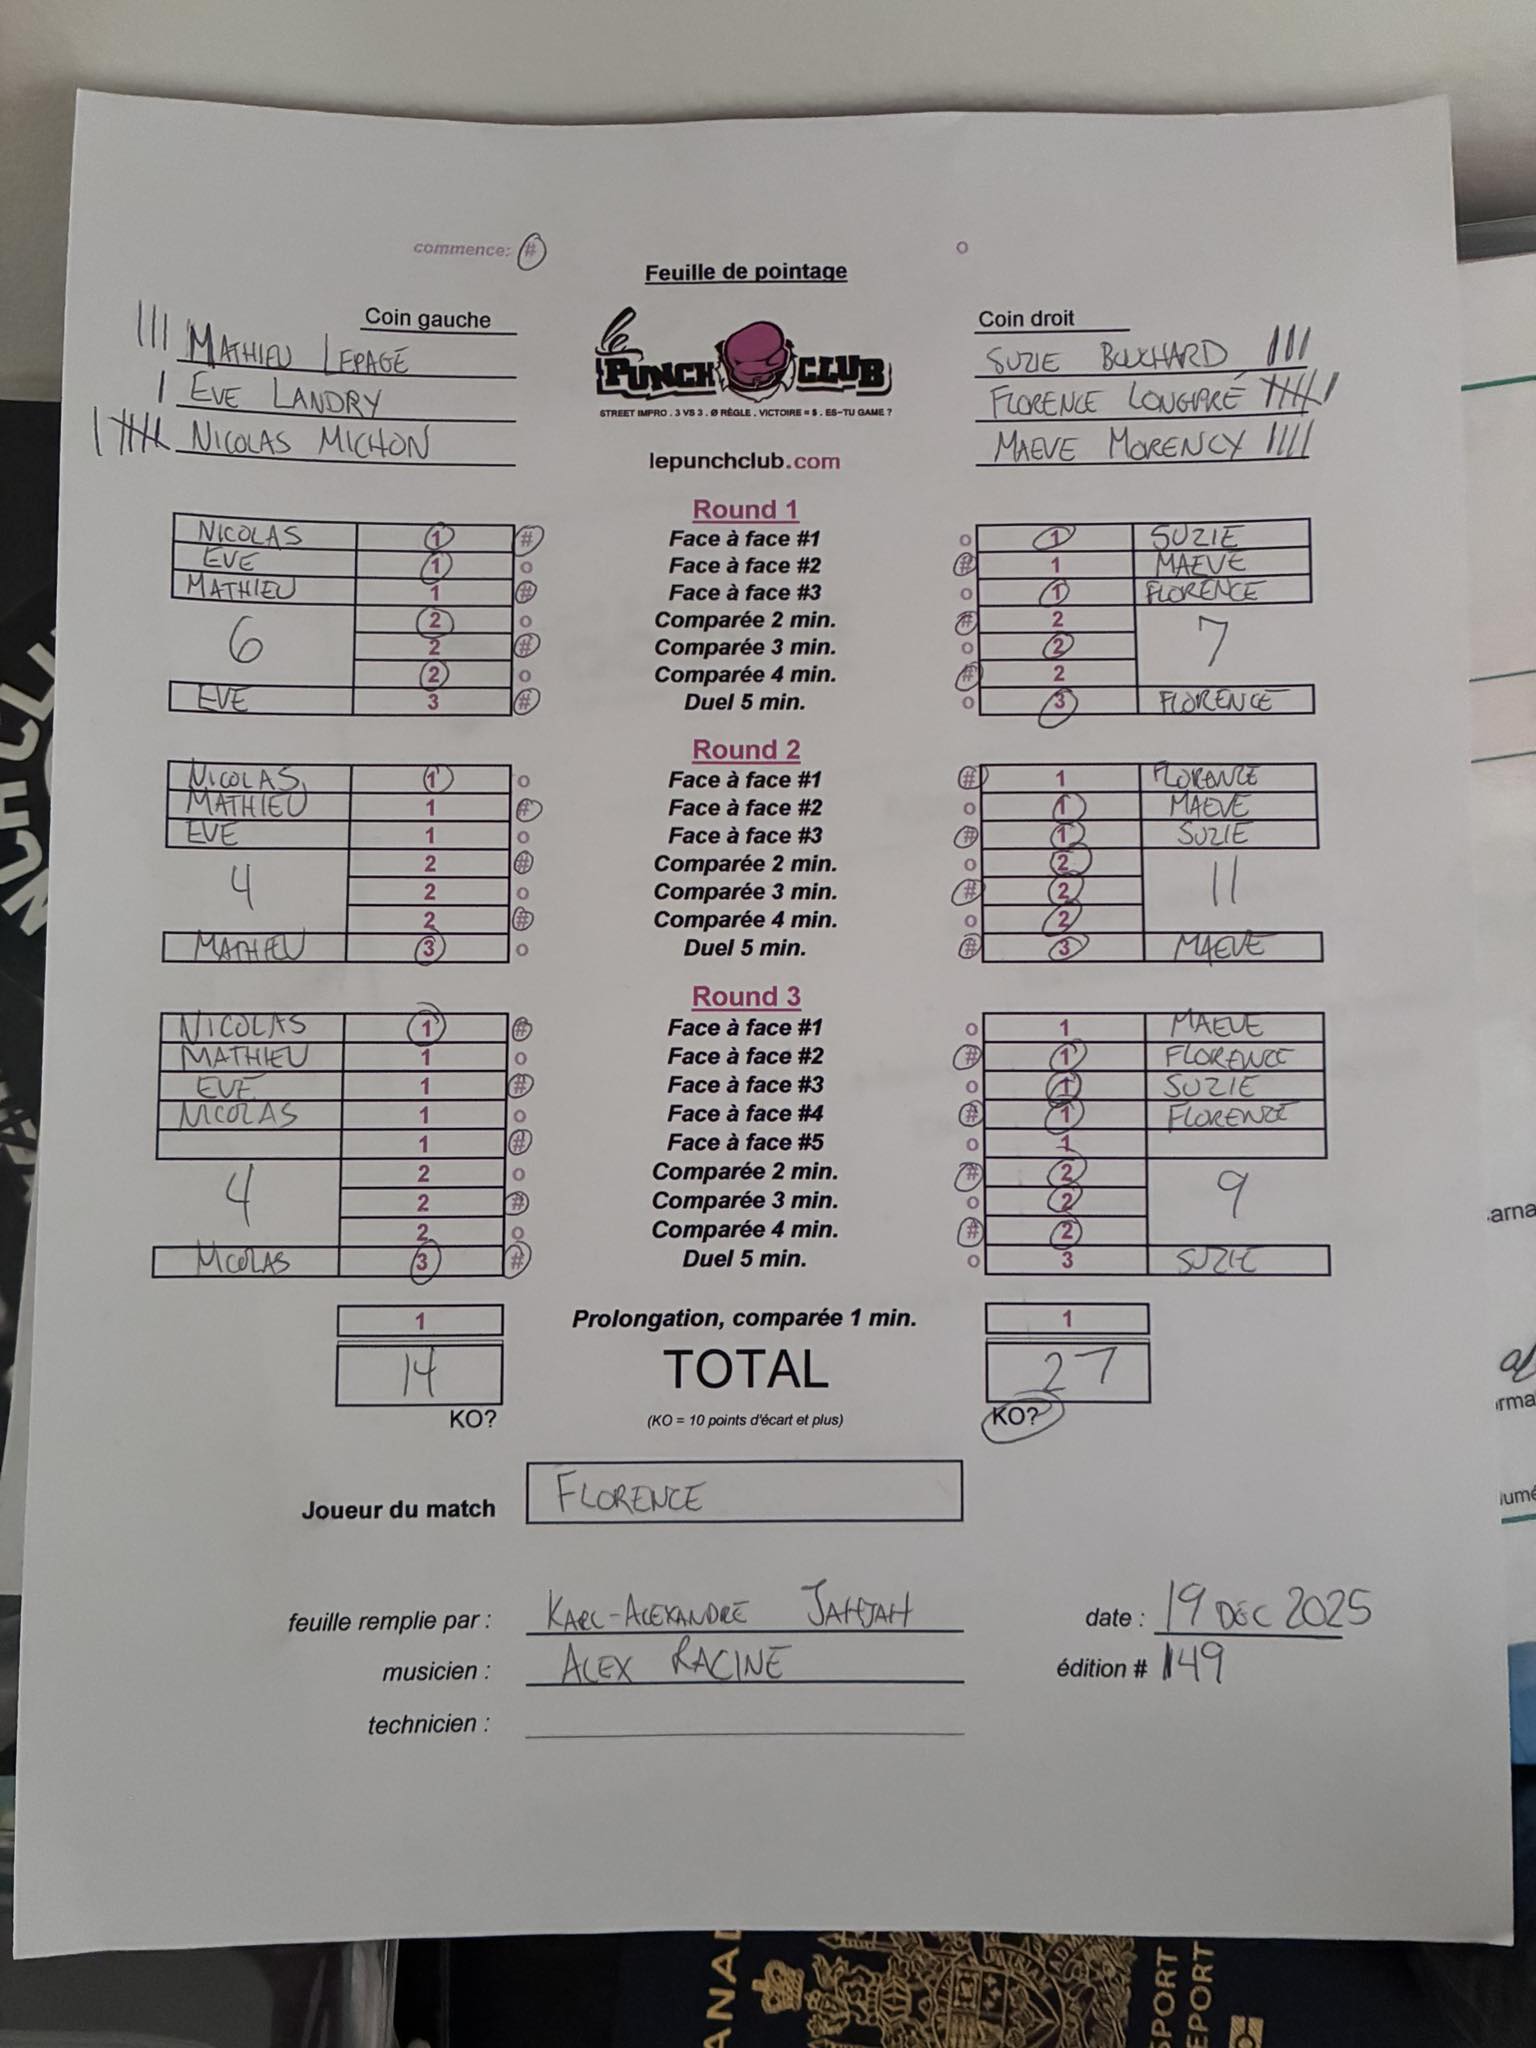 commence: # o
Feuille de pointage
Coin gauche Coin droit
MATHIEU LEPAGE SUZIE BOUCHARD
EVE LANDRY FLORENCE LONGPRÉ
NICOLAS MICHON MAEVE MORENCY
le PUNCH CLUB
STREET IMPRO . 3 VS 3 . Ø RÈGLE . VICTOIRE = $ . ES-TU GAME ?
lepunchclub.com
Round 1
NICOLAS 1 # Face à face #1 o 1 SUZIE
EVE 1 o Face à face #2 # 1 MAEVE
MATHIEU 1 # Face à face #3 o 1 FLORENCE
2 o Comparée 2 min. # 2
6 2 # Comparée 3 min. o 2 7
2 o Comparée 4 min. # 2
EVE 3 # Duel 5 min. o 3 FLORENCE
Round 2
NICOLAS 1 o Face à face #1 # 1 FLORENCE
MATHIEU 1 # Face à face #2 o 1 MAEVE
EVE 1 o Face à face #3 # 1 SUZIE
2 # Comparée 2 min. o 2
4 2 o Comparée 3 min. # 2 11
2 # Comparée 4 min. o 2
MATHIEU 3 o Duel 5 min. # 3 MAEVE
Round 3
NICOLAS 1 # Face à face #1 o 1 MAEVE
MATHIEU 1 o Face à face #2 # 1 FLORENCE
EVE 1 # Face à face #3 o 1 SUZIE
NICOLAS 1 o Face à face #4 # 1 FLORENCE
1 # Face à face #5 o 1
4 2 o Comparée 2 min. # 2 9
2 # Comparée 3 min. o 2
2 o Comparée 4 min. # 2
NICOLAS 3 # Duel 5 min. o 3 SUZIE
1 Prolongation, comparée 1 min. 1
14 TOTAL 27
KO? (KO = 10 points d'écart et plus) KO?
Joueur du match FLORENCE
feuille remplie par : KARL-ALEXANDRE JAHJAH date : 19 DÉC 2025
musicien : ALEX RACINE édition # 149
technicien :